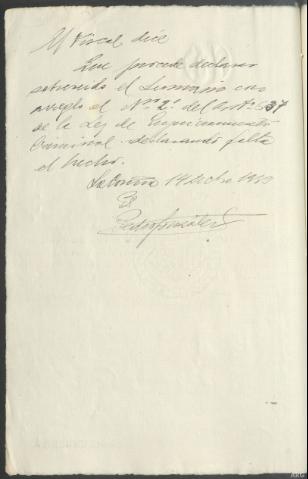 El Fiscal dice
Que procede declarar
sobreseido el sumario con
arreglo al Nº 2º del artº 637
de la Ley de Enjuiciamiento
Criminal declarando falta
el hecho.
La Coruña 14 Octbre 19
Pedro González